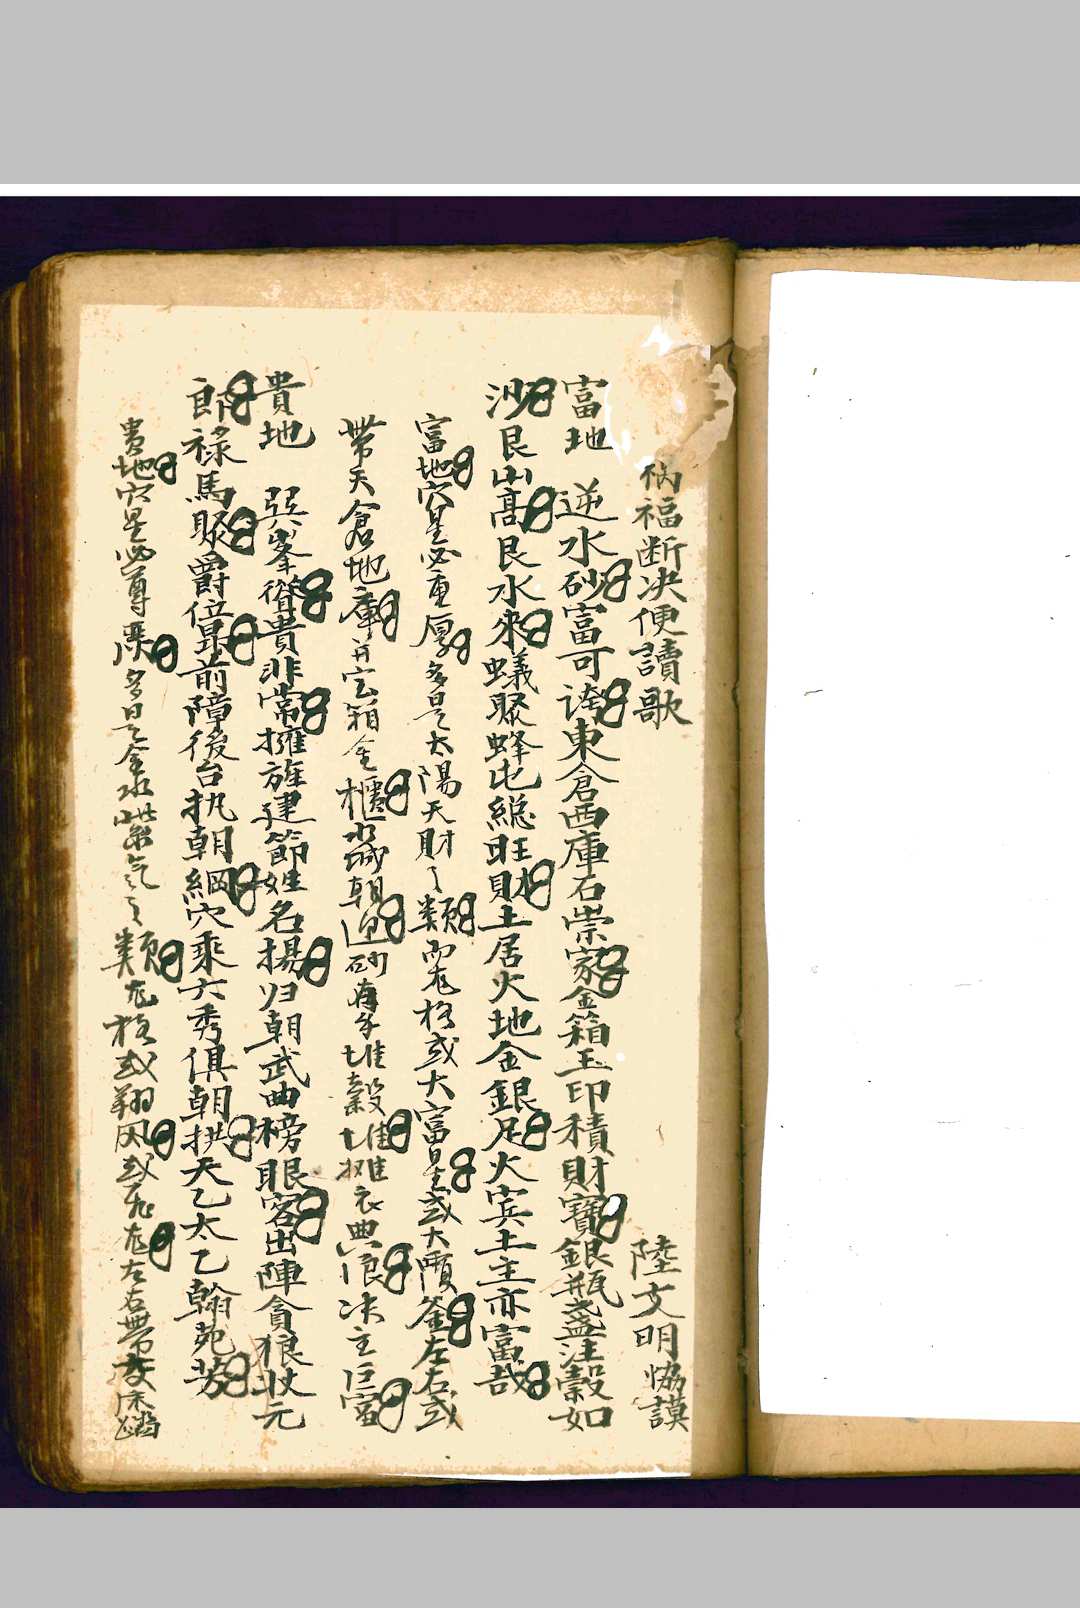 禍福断决便讀歌 陸文明恊謨
富地 逆水砂富可誇東倉西庫石崇家金箱玉印積財寶銀瓶盞注穀如
沙艮山髙艮水來蟻聚蜂屯総旺財土居火地金銀足火宾土主亦富哉
富地穴星必重厚多是太陽天財之類而尨格或大富星或大貭釜左右或
帶天倉地庫并宝箱金櫃水城朝迎砂有禾堆穀堆攤衣典浪决主巨富
貴地 巽峯聳貴非常擁旌建節姓名揚归朝武曲榜眼客出陣貪狼状元
郎禄馬聚爵位昂前障後台执朝綱穴乘六秀俱朝拱天乙太乙翰苑芳
貴地穴星必尊嚴多是金水紫气之類尨格或翔凤或飛尨左右帶